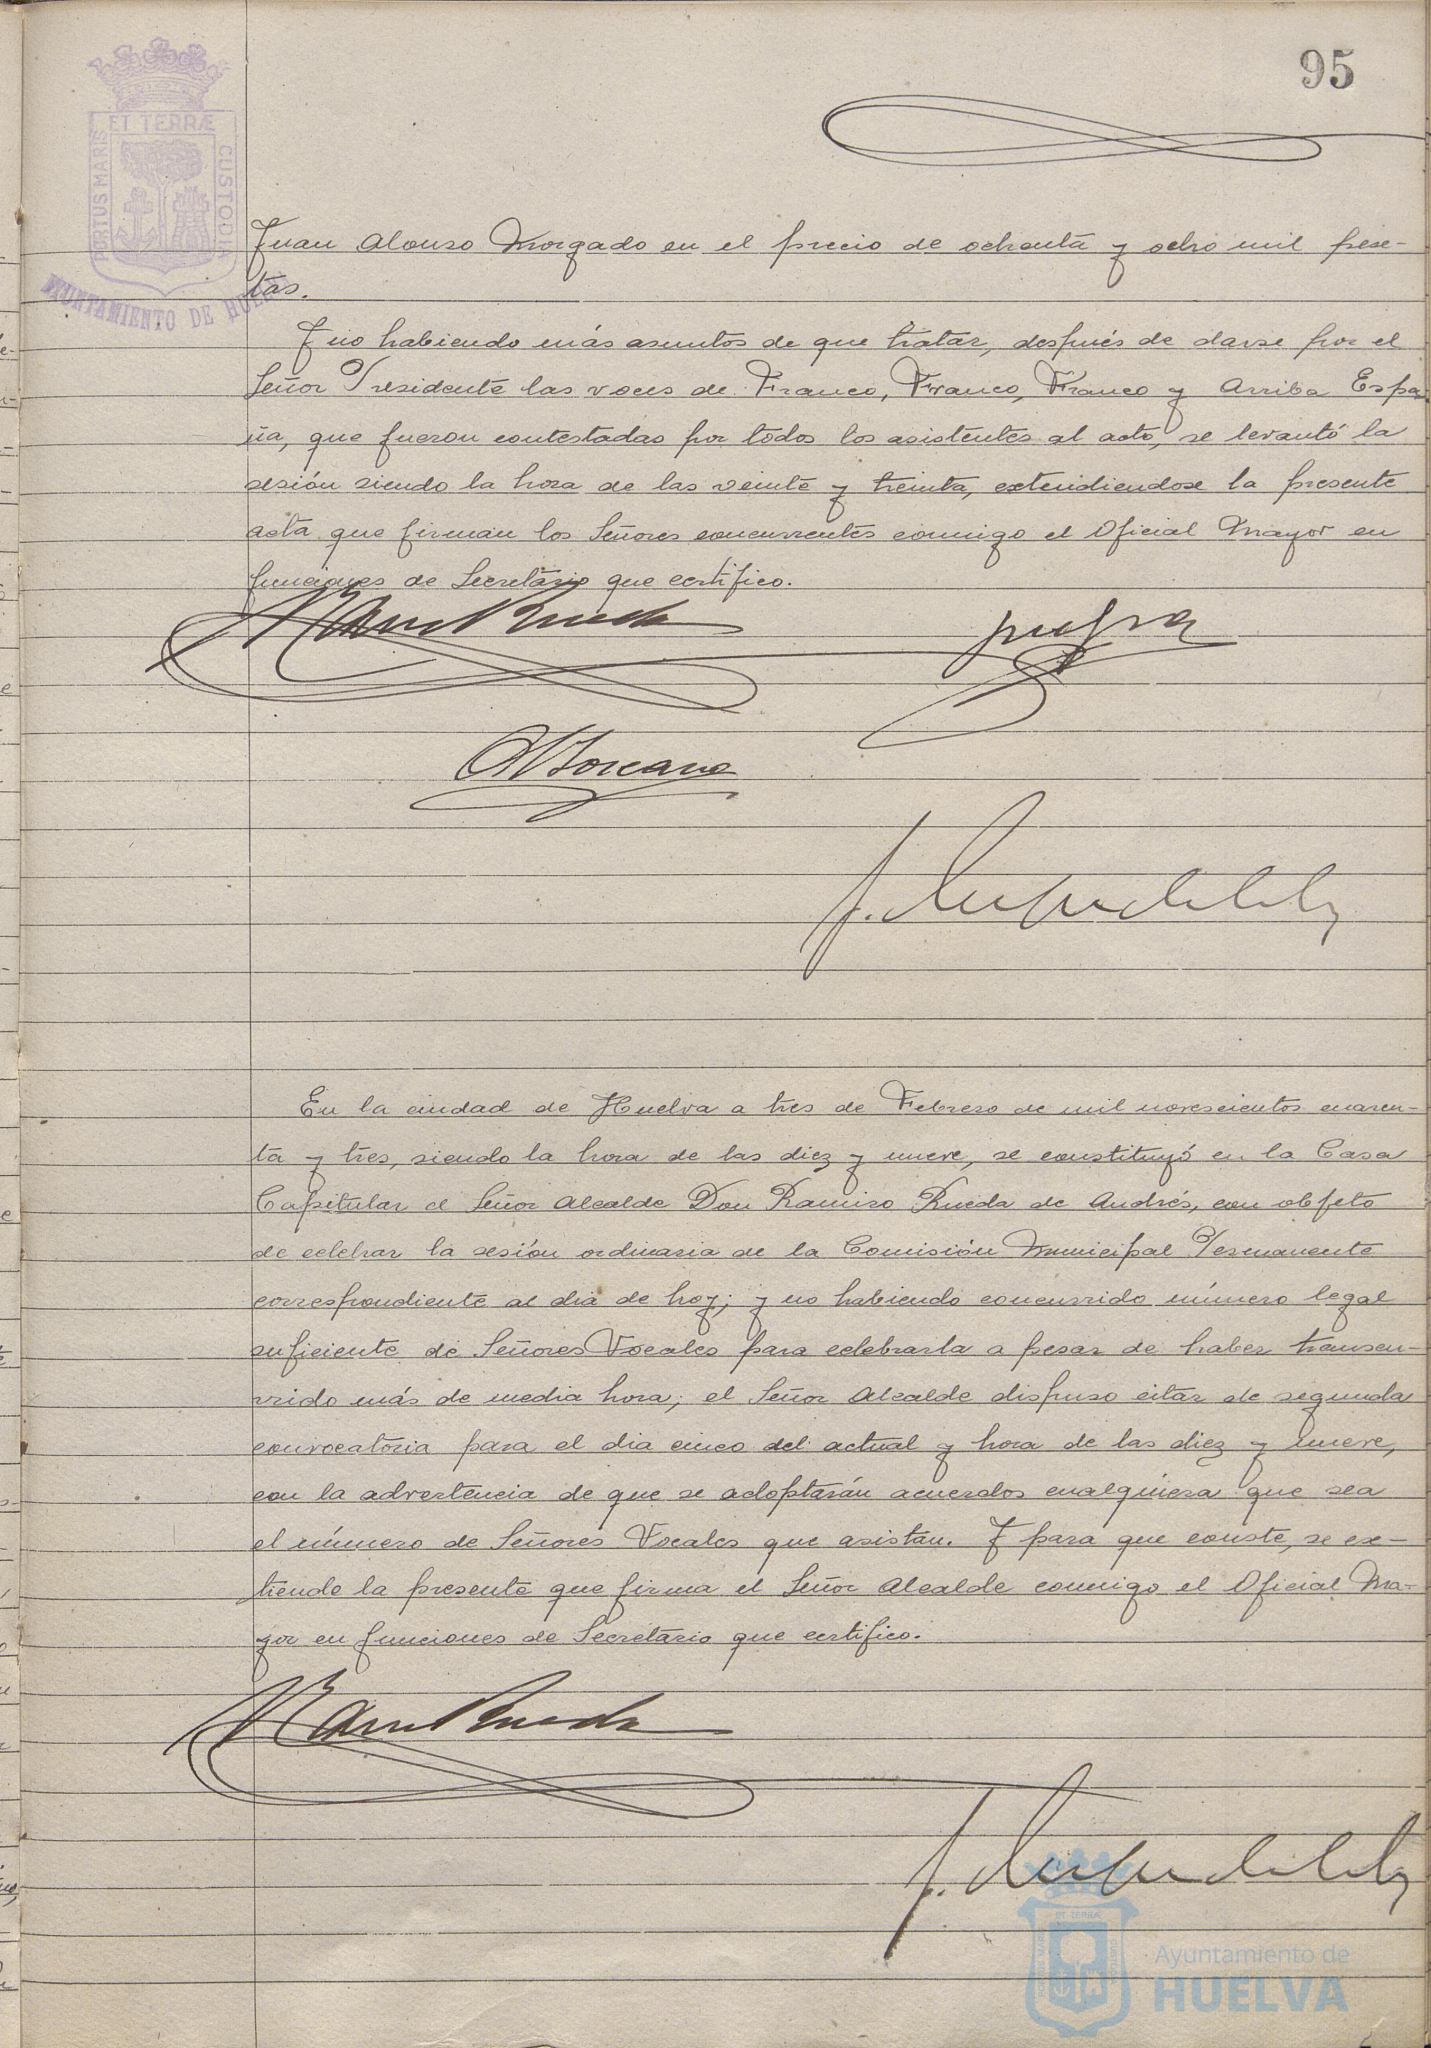 95
ET TERRÆ
PORTUS MARIS
CUSTODIA
AYUNTAMIENTO DE HUELVA
Juan Alonso Morgado en el precio de ochenta y ocho mil pese-
tas.
Y no habiendo más asuntos de que tratar, después de darse por el
Señor Presidente las voces de Franco, Franco, Franco y Arriba Espa-
ña, que fueron contestadas por todos los asistentes al acto, se levantó la
sesión siendo la hora de las veinte y treinta, extendiendose la presente
acta que firman los Señores concurrentes conmigo el Oficial Mayor en
funciones de Secretario que certifico.
En la ciudad de Huelva a tres de Febrero de mil novescientos cuaren-
ta y tres, siendo la hora de las diez y nueve, se constituyó en la Casa
Capitular el Señor Alcalde Don Ramiro Rueda de Andrés, con objeto
de celebrar la sesión ordinaria de la Comisión Municipal Permanente
correspondiente al dia de hoy; y no habiendo concurrido número legal
suficiente de Señores Vocales para celebrarla a pesar de haber transcu-
rrido más de media hora, el Señor Alcalde dispuso citar de segunda
convocatoria para el dia cinco del actual y hora de las diez y nueve,
con la advertencia de que se adoptarán acuerdos cualquiera que sea
el número de Señores Vocales que asistan. Y para que conste, se ex-
tiende la presente que firma el Señor Alcalde conmigo el Oficial Ma-
yor en funciones de Secretario que certifico.
Ayuntamiento de
HUELVA